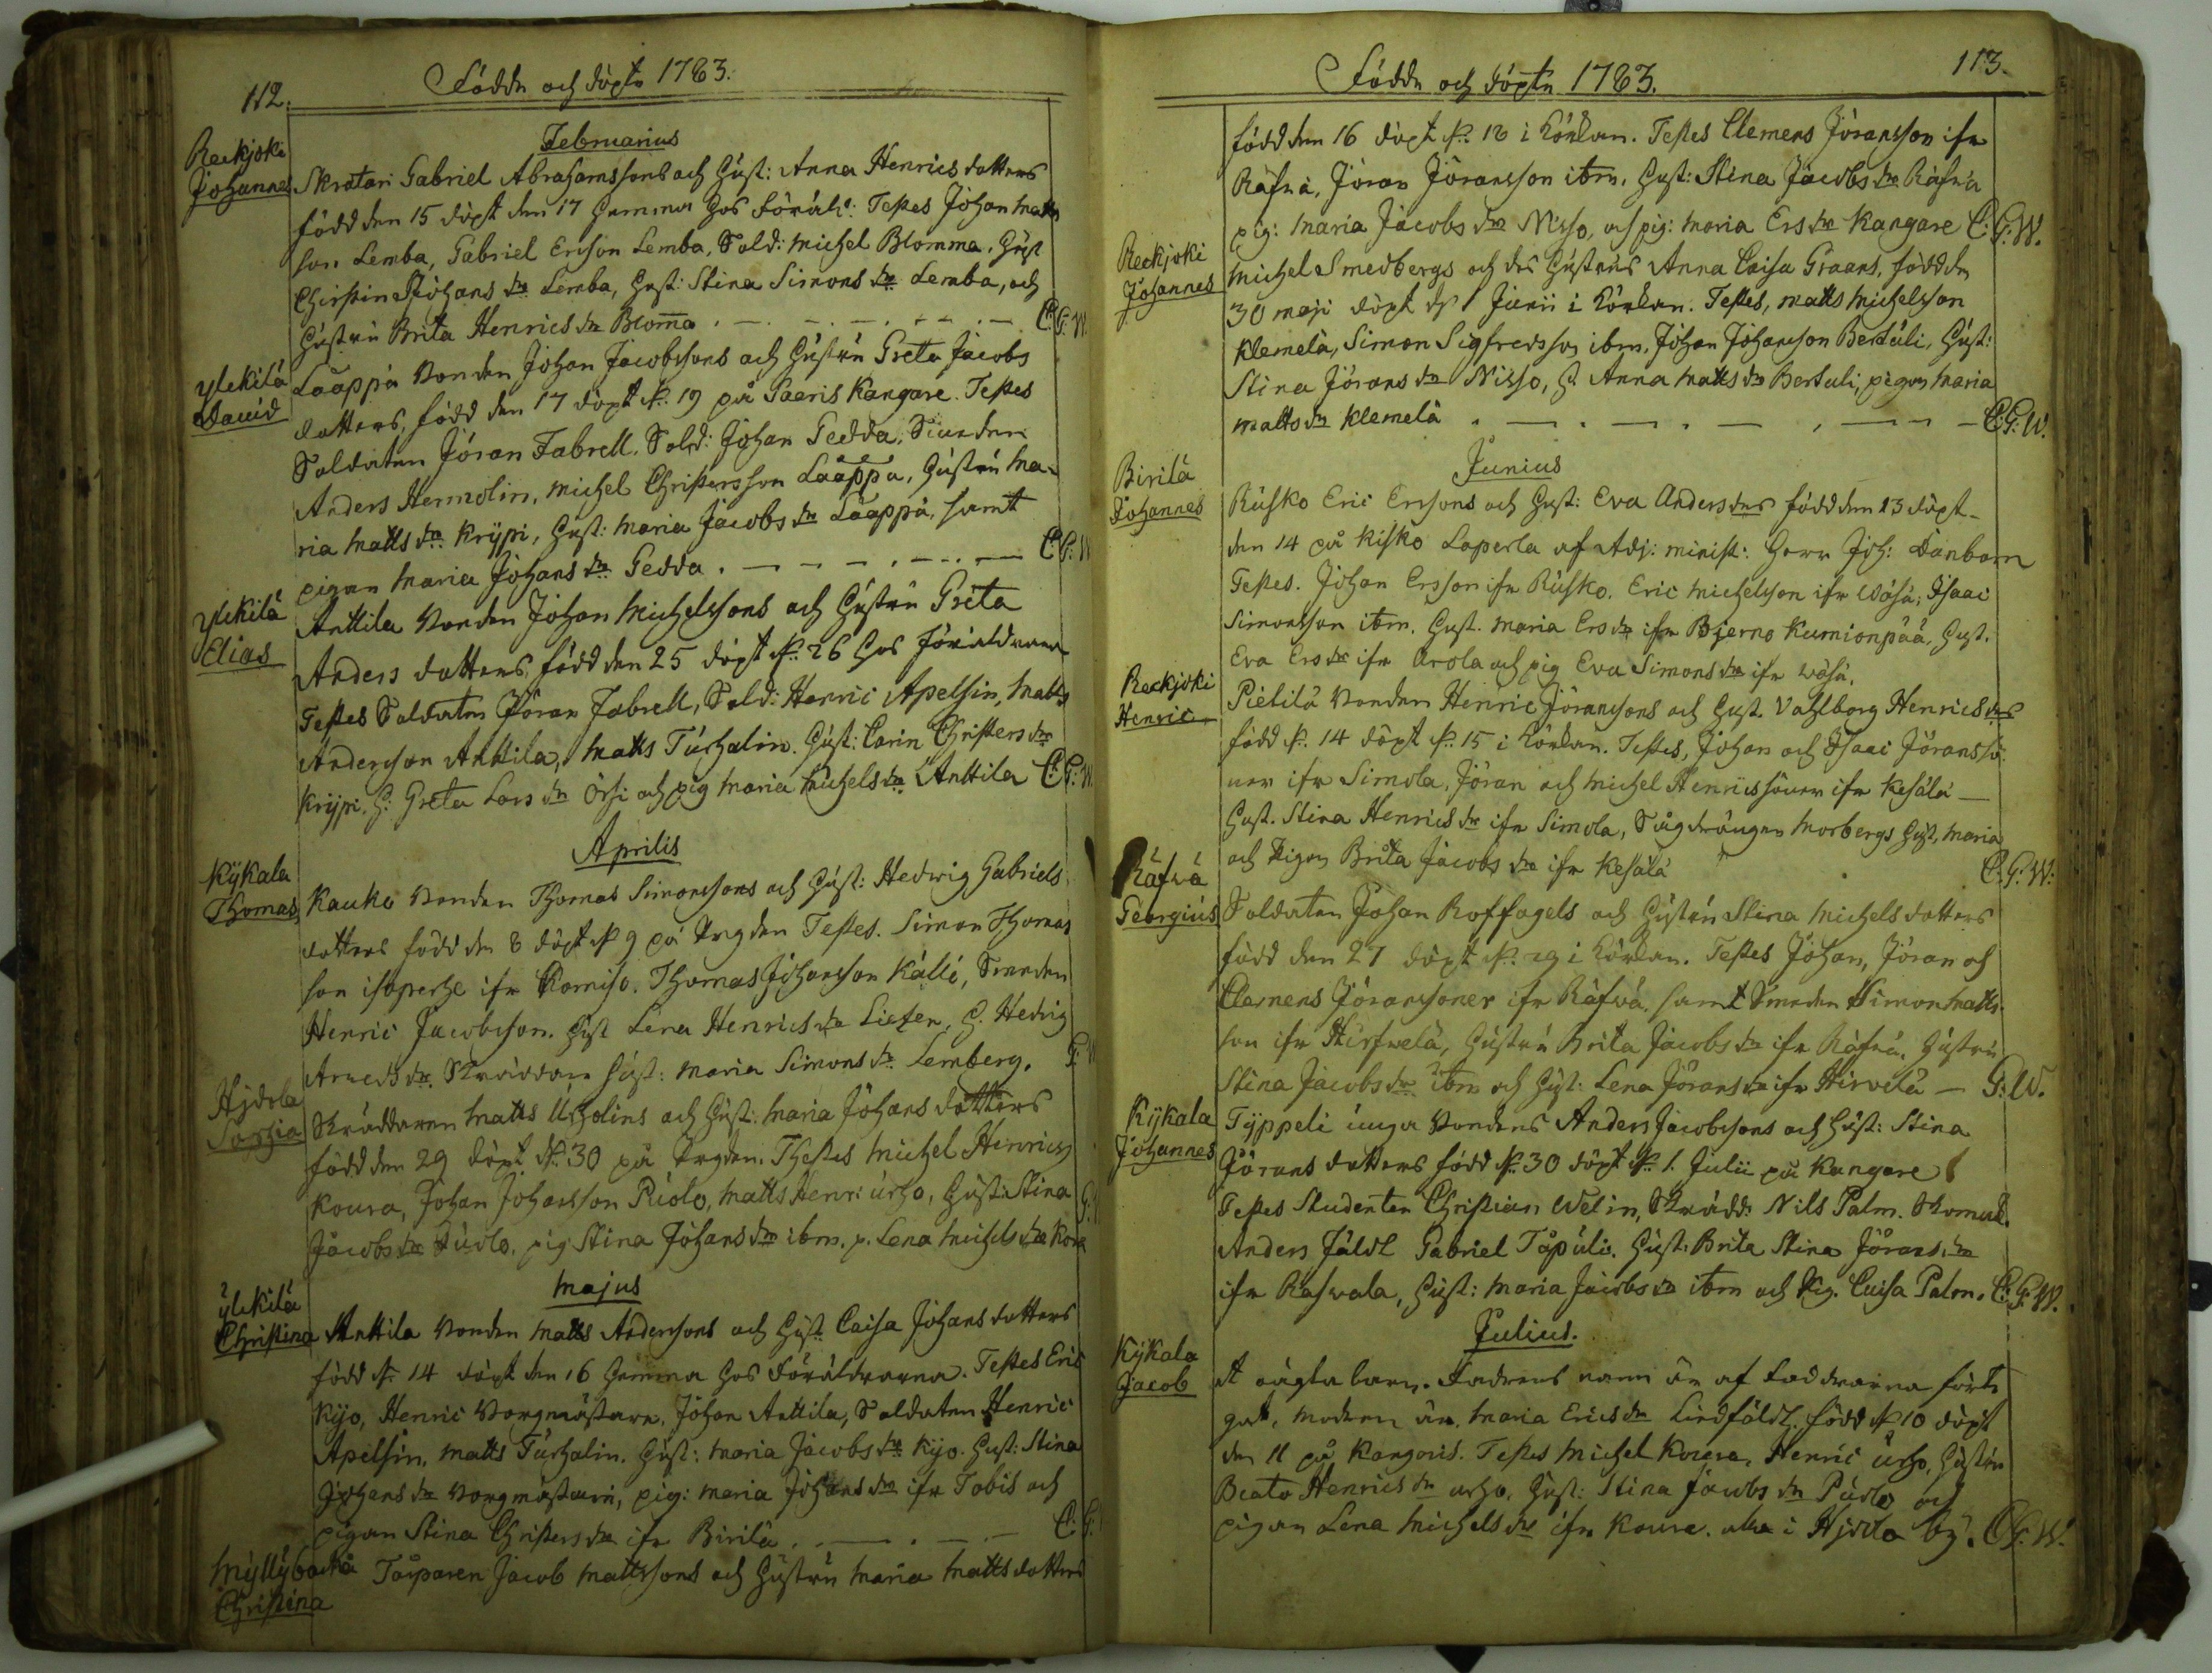 112.
Födde och döpte 1763.
Februarius
Reekjoki
Johannes
Skrotari Gabriel Abrahamssons och Hust: Anna Henrics dotters
född den 15 döpt den 17 hemma hos Föräld: Testes Johan Matts
son Lemba, Gabriel Ersson Lemba, Sold: Michel Blomma, Hust
Christin Johans dr Lemba, Hust: Stina Simons dr Lemba, och
Hustru Brita Henrics dr Blom̅a . — . — . — C:G:W.
Ylikilä
David
Laappa Bonden Johan Jacobssons och Hustru Greta Jacobs
dotters, född den 17 döpt d. 19 på Saaris Kangare. Testes
Soldaten Jöran Fabrell, Sold: Johan Gedda, Smeden
Anders Hermolin, Michel Christersson Laappa, Hustru Ma-
ria Matts dr Krypi, Hust: Maria Jacobs dr Laappa, samt
pigan Maria Johans dr Gedda . — . — . — C:G:W
Ylikilä
Elias
Anttila Bonden Johan Michelssons och Hustru Greta
Anders dotters, född den 25 döpt d. 26 hos föräldrarna
Testes Soldaten Jöran Fabrell, Sold: Henric Apelsin, Matts
Andersson Anttila, Matts Turhalin. Hust: Carin Christers dr
Krypi. H: Greta Lars dr Orsi och pig Maria Michels dr Anttila C:G:W
Aprilis
Kykala
Thomas
Kauko Bonden Thomas Simonssons och Hust: Hedwig Gabriels
dotters född den 8 döpt d 9 på Trgden Testes. Simon Thomas
son isoperhe ifr Komiso. Thomas Johansson Källi, Smeden
Henric Jacobsson. Hust Lena Henrics dr Liefer, H. Hedvig
Arueds dr. Skräddare Hust: Maria Simons dr Lemberg. G:W
Hjdola
Sophia
Skräddaren Matts Urholins och Hust: Maria Johans dotters
född den 29 döpt d. 30 på Trgden. Thestes Michel Henrics
Koura, Johan Johansson Piolo, Matts Henr: urho, Hust: Stina
Jacobs dr Piolo, pig Stina Johans dr ibm. p. Lena Michels dr Kora
Majus
Ylikilä
Christina
Anttila Bonden Matts Anderssons och Hust: Caisa Johans dotters
född d. 14 döpt den 16 hemma hos Föräldrarna. Testes Eric
Kijo, Henric Borgmästare, Johan Anttila, Soldaten Henric
Apelsin, Matts Turhalin. Hust: Maria Jacobs dr Kijo. Hust: Stina
Johans dr Borgmästarin, pig: Maria Johans dr ifr Tobis och
pigan Stina Christers dr ifr Birilä . — . — C:G:
Myllybacka
Christina
Torparen Jacob Mattssons och Hustru Maria Matts dotters
113.
Födde och döpte 1763.
född den 16 döpt d. 18 i Körkan. Testes Clemens Jöransson ifr
Räfvä, Jöran Jöransson ibm. Hust: Stina Jacobs dr Räfvä
pig: Maria Jacobs dr Nisso, och pig: Maria Ers dr Kangare C:G:W.
Reekjoki
Johannes
Michel Smedbergs och des Hustrus Anna Caisa Graans, född den
30 maji döpt d. 1 Junii i Körkan. Testes, Matts Michelsson
Klemelä, Simon Sigfredsson ibm. Johan Johansson Bertuli, Hust:
Stina Jörans dr Nisso, H. Anna Matts dr Bertuli, pigan Maria
Matts dr Klemelä . — . — . — C:G:W.
Junius
Birilä
Johannes
Rusko Eric Ersons och Hust: Eva Anders drs född den 13 döpt
den 14 på Kisko Laperla af Adj: minist: Herr Joh: Danborn
Testes. Johan Ersson ifr Rusko. Eric Michelsson ifr Wåhå, Isaac
Simonsson ibm. Hust. Maria Ers dr ifr Bjerno Kumionpää, Hust.
Eva Ers dr ifr Arola och pig Eva Simons dr ifr wåhå.
Reekjoki
Henric
Pietilä Bonden Henric Jöranssons och Hust. Valborg Henrics drs
född d. 14 döpt d. 15 i Körkan. Testes, Johan och Isaac Jöransso
ner ifr Simola, Jöran och Michel Henrissöner ifr Kesälä —
Hust. Stina Henrics dr ifr Simola, Sågdrängen Morbergs Hust, Maria
och Pigan Brita Jacobs dr ifr Kesälä C:G:W:
Räfvä
Georgius
Soldaten Johan Roffogels och Hustru Stina Michels dotters
född den 27 döpt d. 29 i Körkan. Testes Johan, Jöran och
Clemens Jöranssoner ifr Räfvä, samt Smeden Simon Matts
son ifr Hirfwelä, Hustru Brita Jacobs dr ifr Räfvä, Hustru
Stina Jacobs dr ibm och Hust: Lena Jörans dr ifr Hirvelä — G:W.
Kykala
Johannes
Typpeli unga Bondens Anders Jacobssons och Hust: Stina
Jörans dotters född d. 30 döpt d. 1. Julii på Kangare
Testes Studenten Christian Welin, Skrädd: Nils Palm. Skomak.
Anders Fäldt Gabriel Tåpuli. Hust: Brita Stina Jörans dr
ifr Rahvala, Hust: Maria Jacobs dr ibm och Pig. Caisa Palm. C:G:W.
Julius.
Kykala
Jacob
et oägta barn. Fadrens namn är af Faddrarna förti
gat, modern är Maria Erics dr Lindfäldt. född d 10 döpt
den 11 på Kangaris. Testes Michel Koura, Henric urho, Hustru
Beata Henrics dr urho, Hust: Stina Jacobs dr Piolo och
pigan Lena Michels dr ifr Koura. alla i Hjdola by. C:G:W.